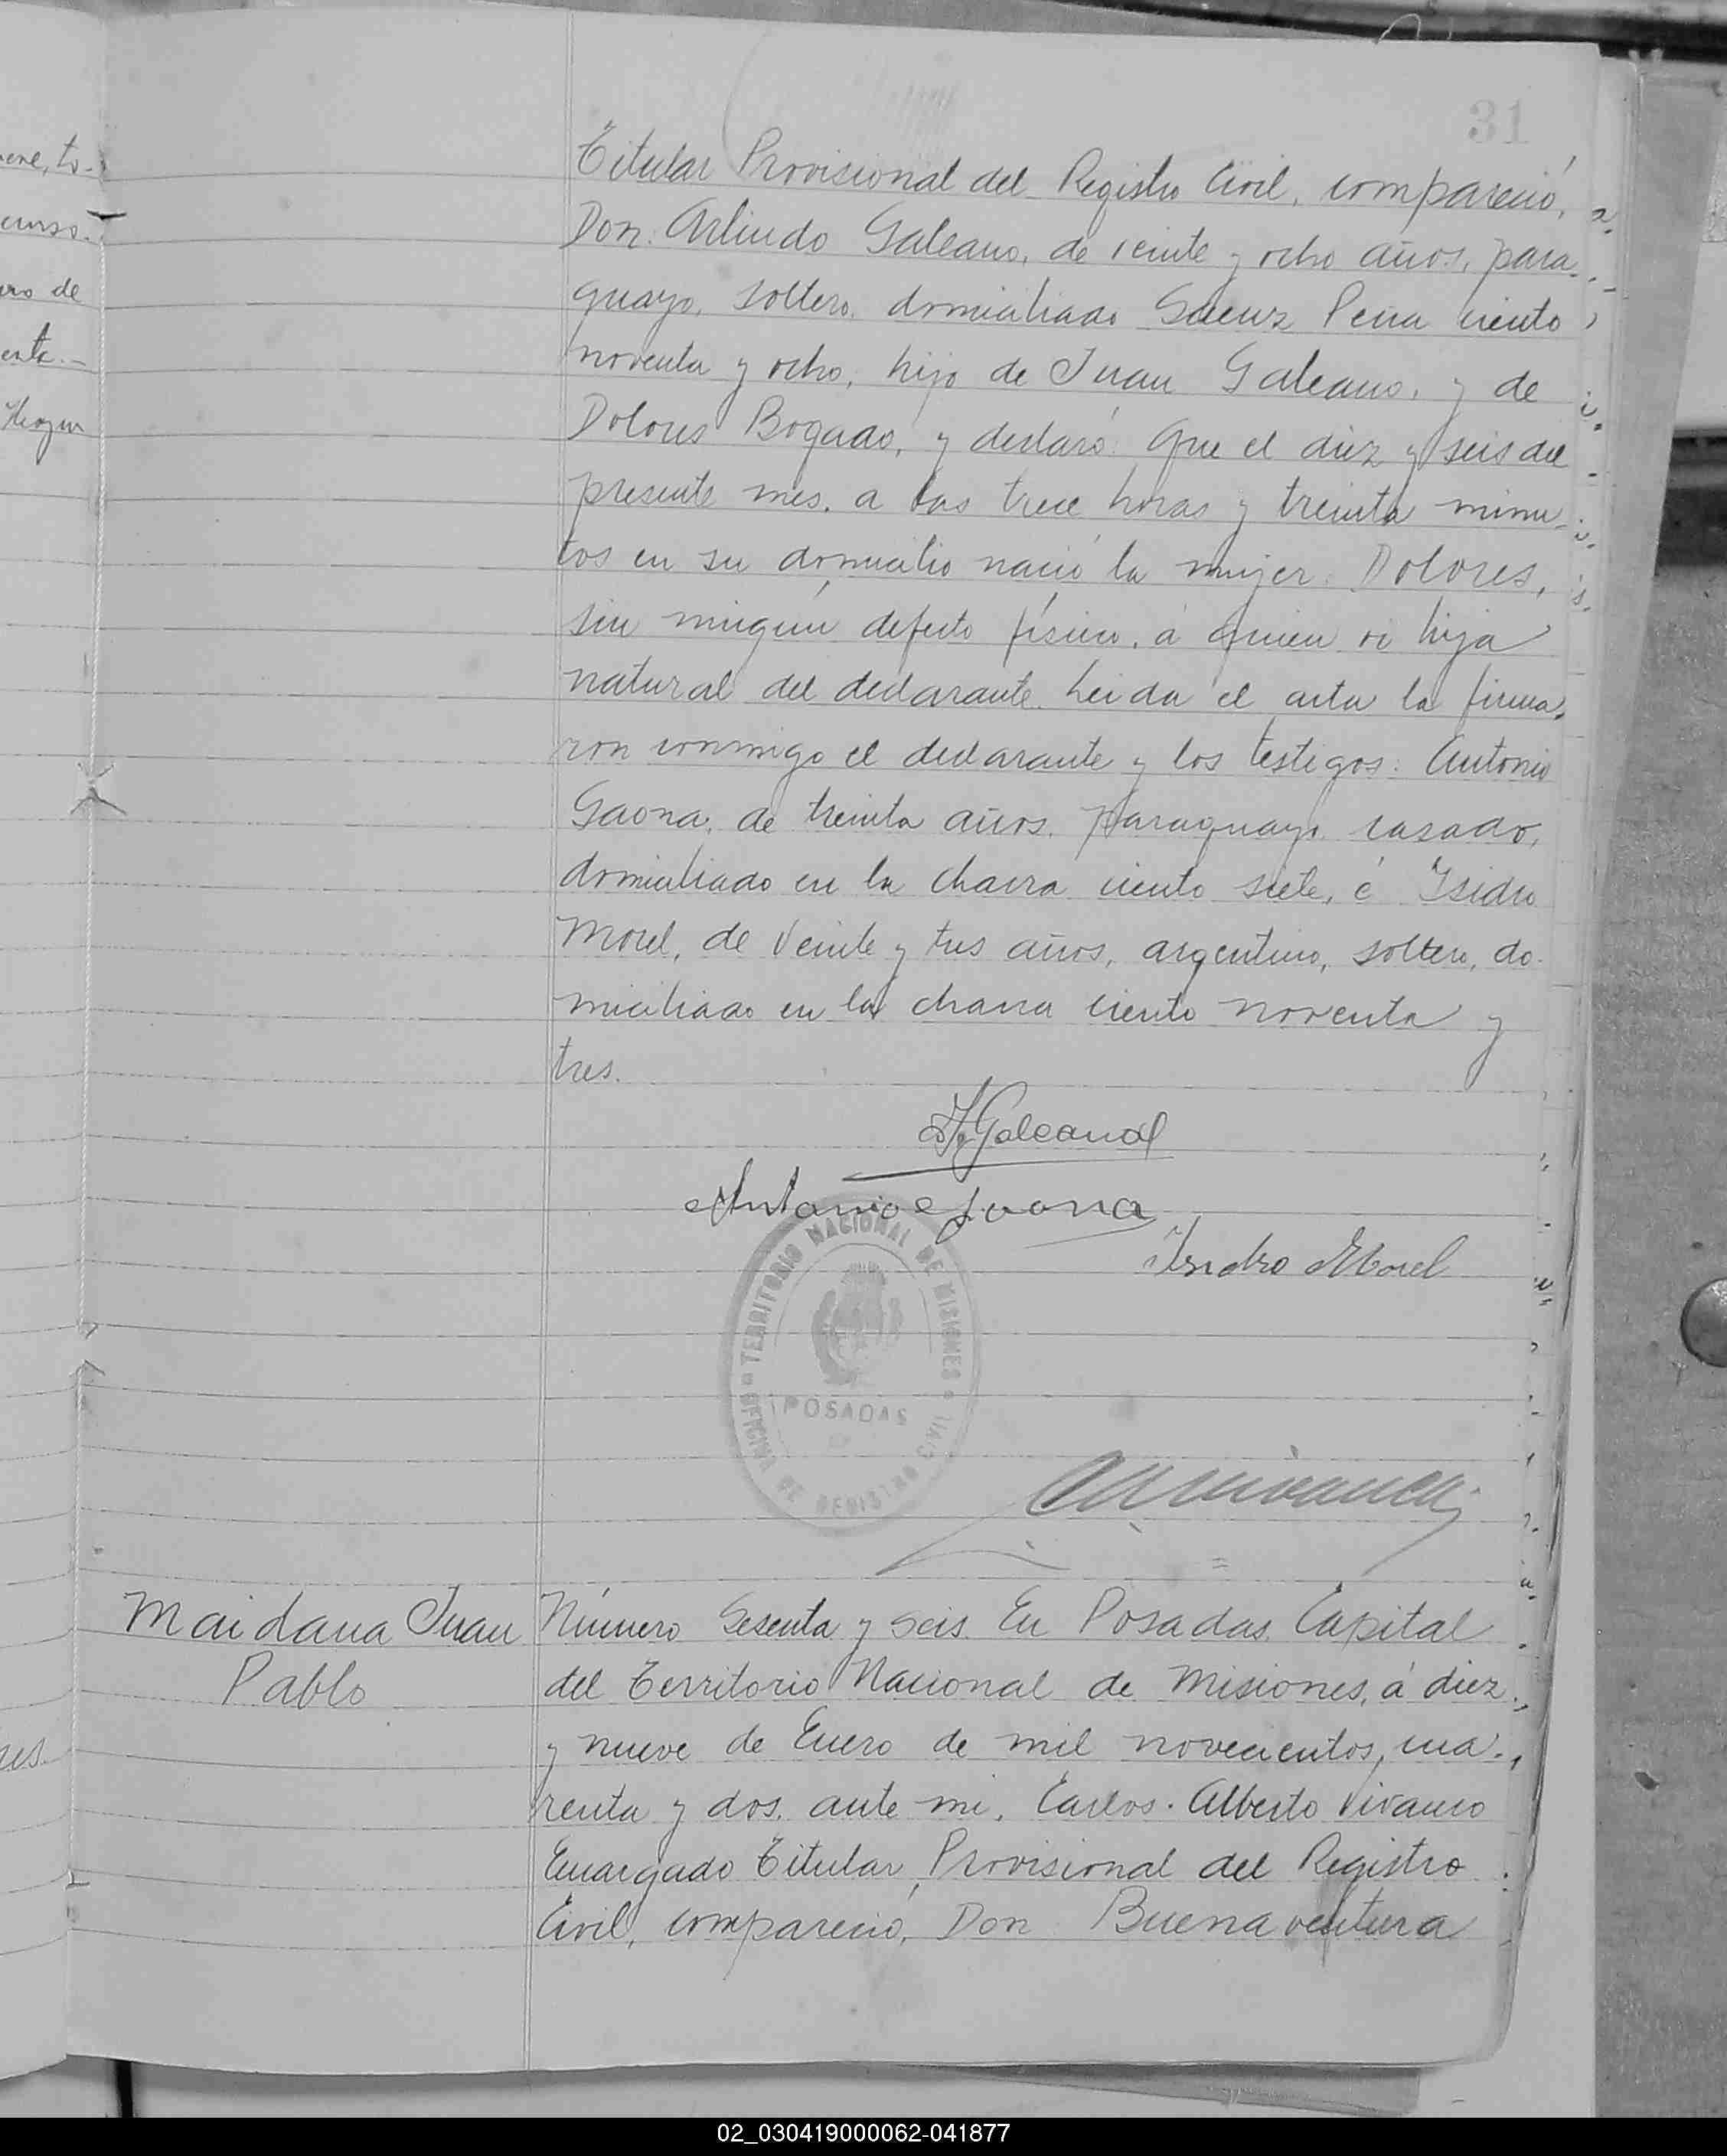 31
Titular Provisional del Registro Civil, compareció,
Don. Arlindo Galeano, de veinte y ocho años, para-
guayo, soltero, domiciliado Saenz Peña ciento
noventa y ocho, hijo de Juan Galeano, y de
Dolores Bogado, y declaró: Que el diez y seis del
presente mes, a las trece horas y treinta minu-
tos en su domicilio nació la mujer: Dolores,
sin ningún defecto físico, á quien vi hija
natural del declarante. Leida el acta la firma-
ron conmigo el declarante y los testigos: Antonio
Gaona, de treinta años, paraguayo, casado,
domiciliado en la chacra ciento siete, é Isidro
Morel, de veinte y tres años, argentino, soltero, do-
miciliado en la chacra ciento noventa y
tres.
Galeano
Antonio Gaona
Isidro Morel
OFICINA DE REGISTRO CIVIL TERRITORIO NACIONAL DE MISIONES
POSADAS
Maidana Juan
Pablo
Número Sesenta y seis. En Posadas, Capital
del Territorio Nacional de Misiones, á diez
y nueve de Enero de mil novecientos, cua-
renta y dos, ante mi, Carlos Alberto Vivanco
Encargado Titular, Provisional del Registro
Civil, compareció, Don Buenaventura
02_030419000062-041877